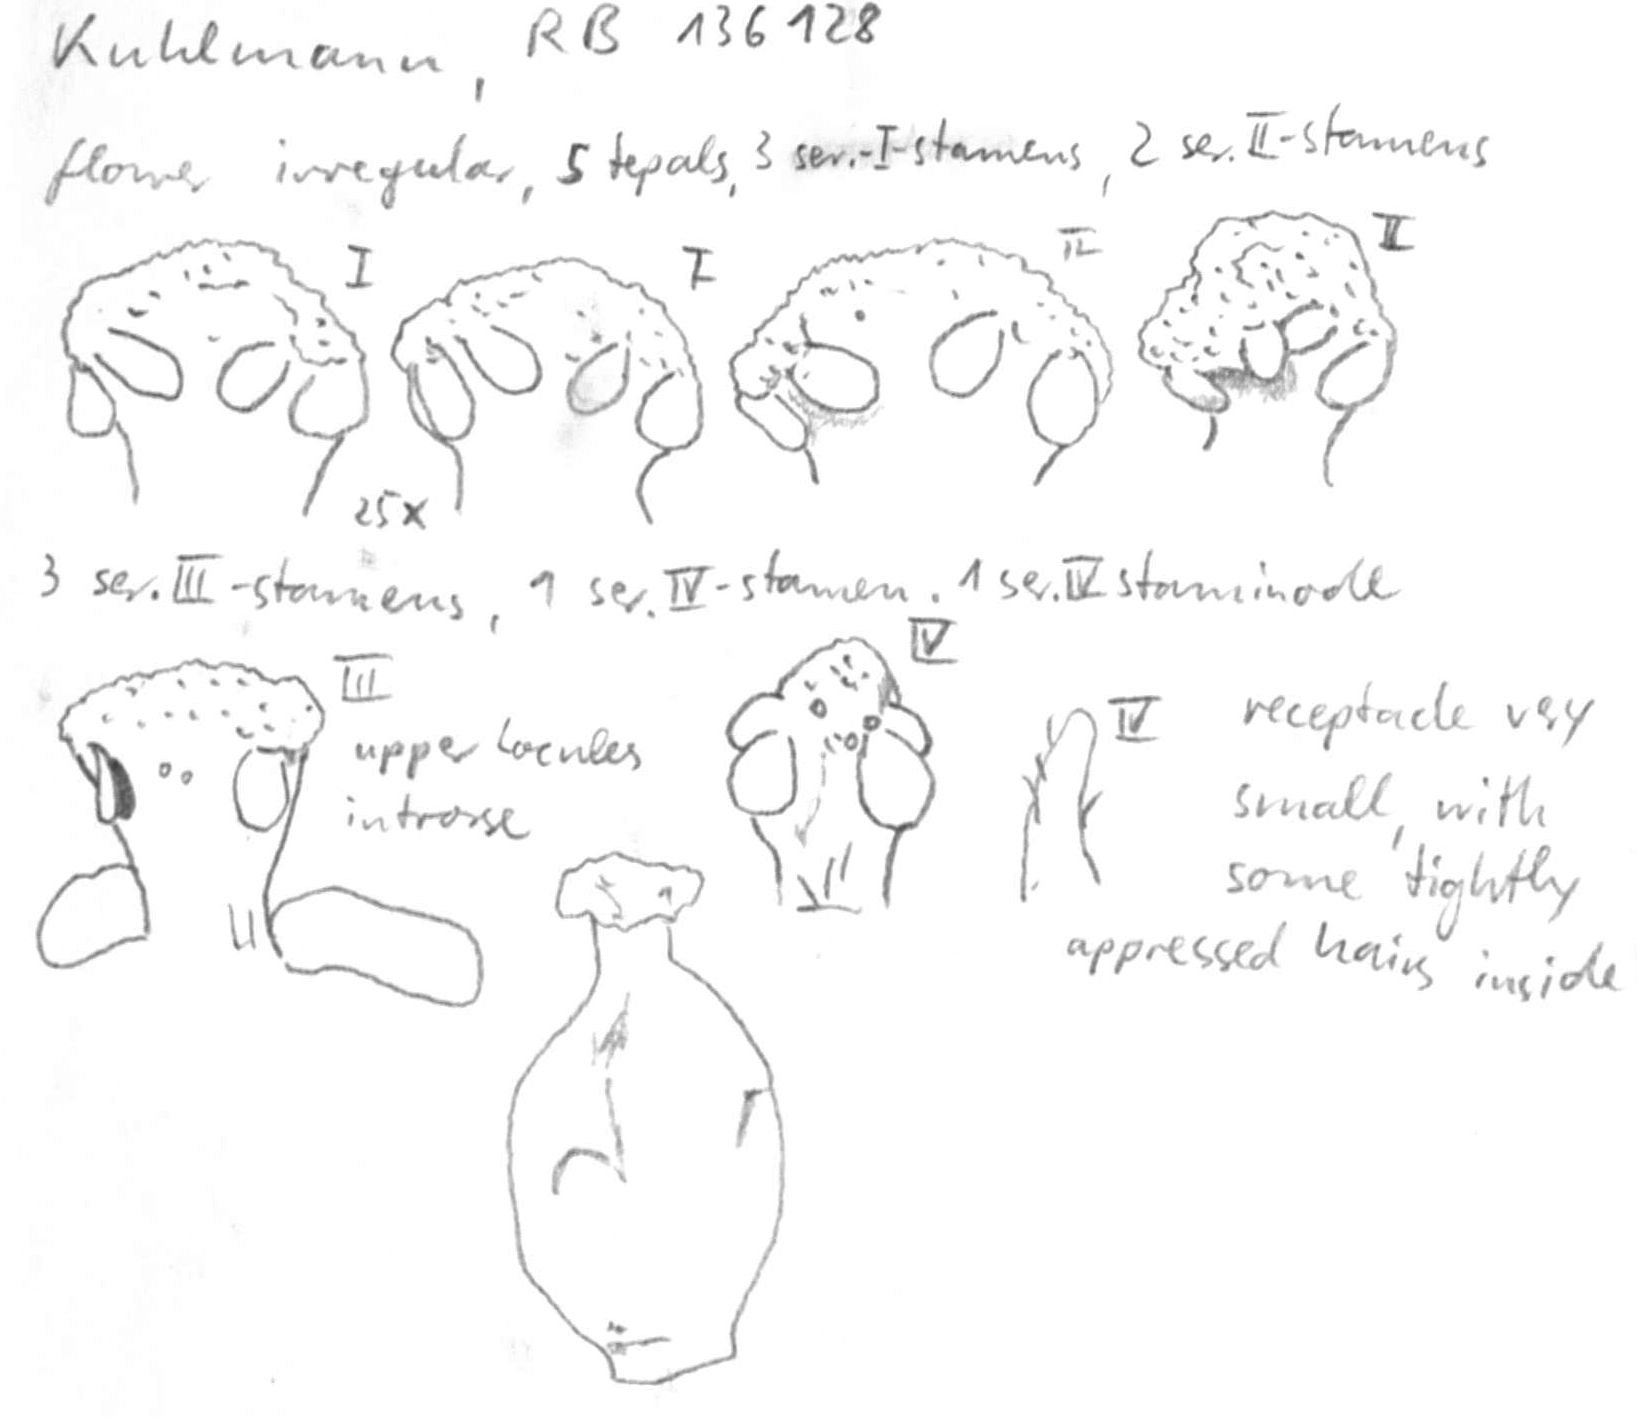 Kuhlmann, RB 136128
flower irregular, 5 tepals, 3 ser.-I-stamens, 2 ser. II-stamens
I
I
II
II
25x
3 ser. III-stamens, 1 ser. IV-stamen. 1 ser. IV staminode
III
upper locules
introrse
IV
IV
receptacle very
small, with
some tightly
appressed hairs inside